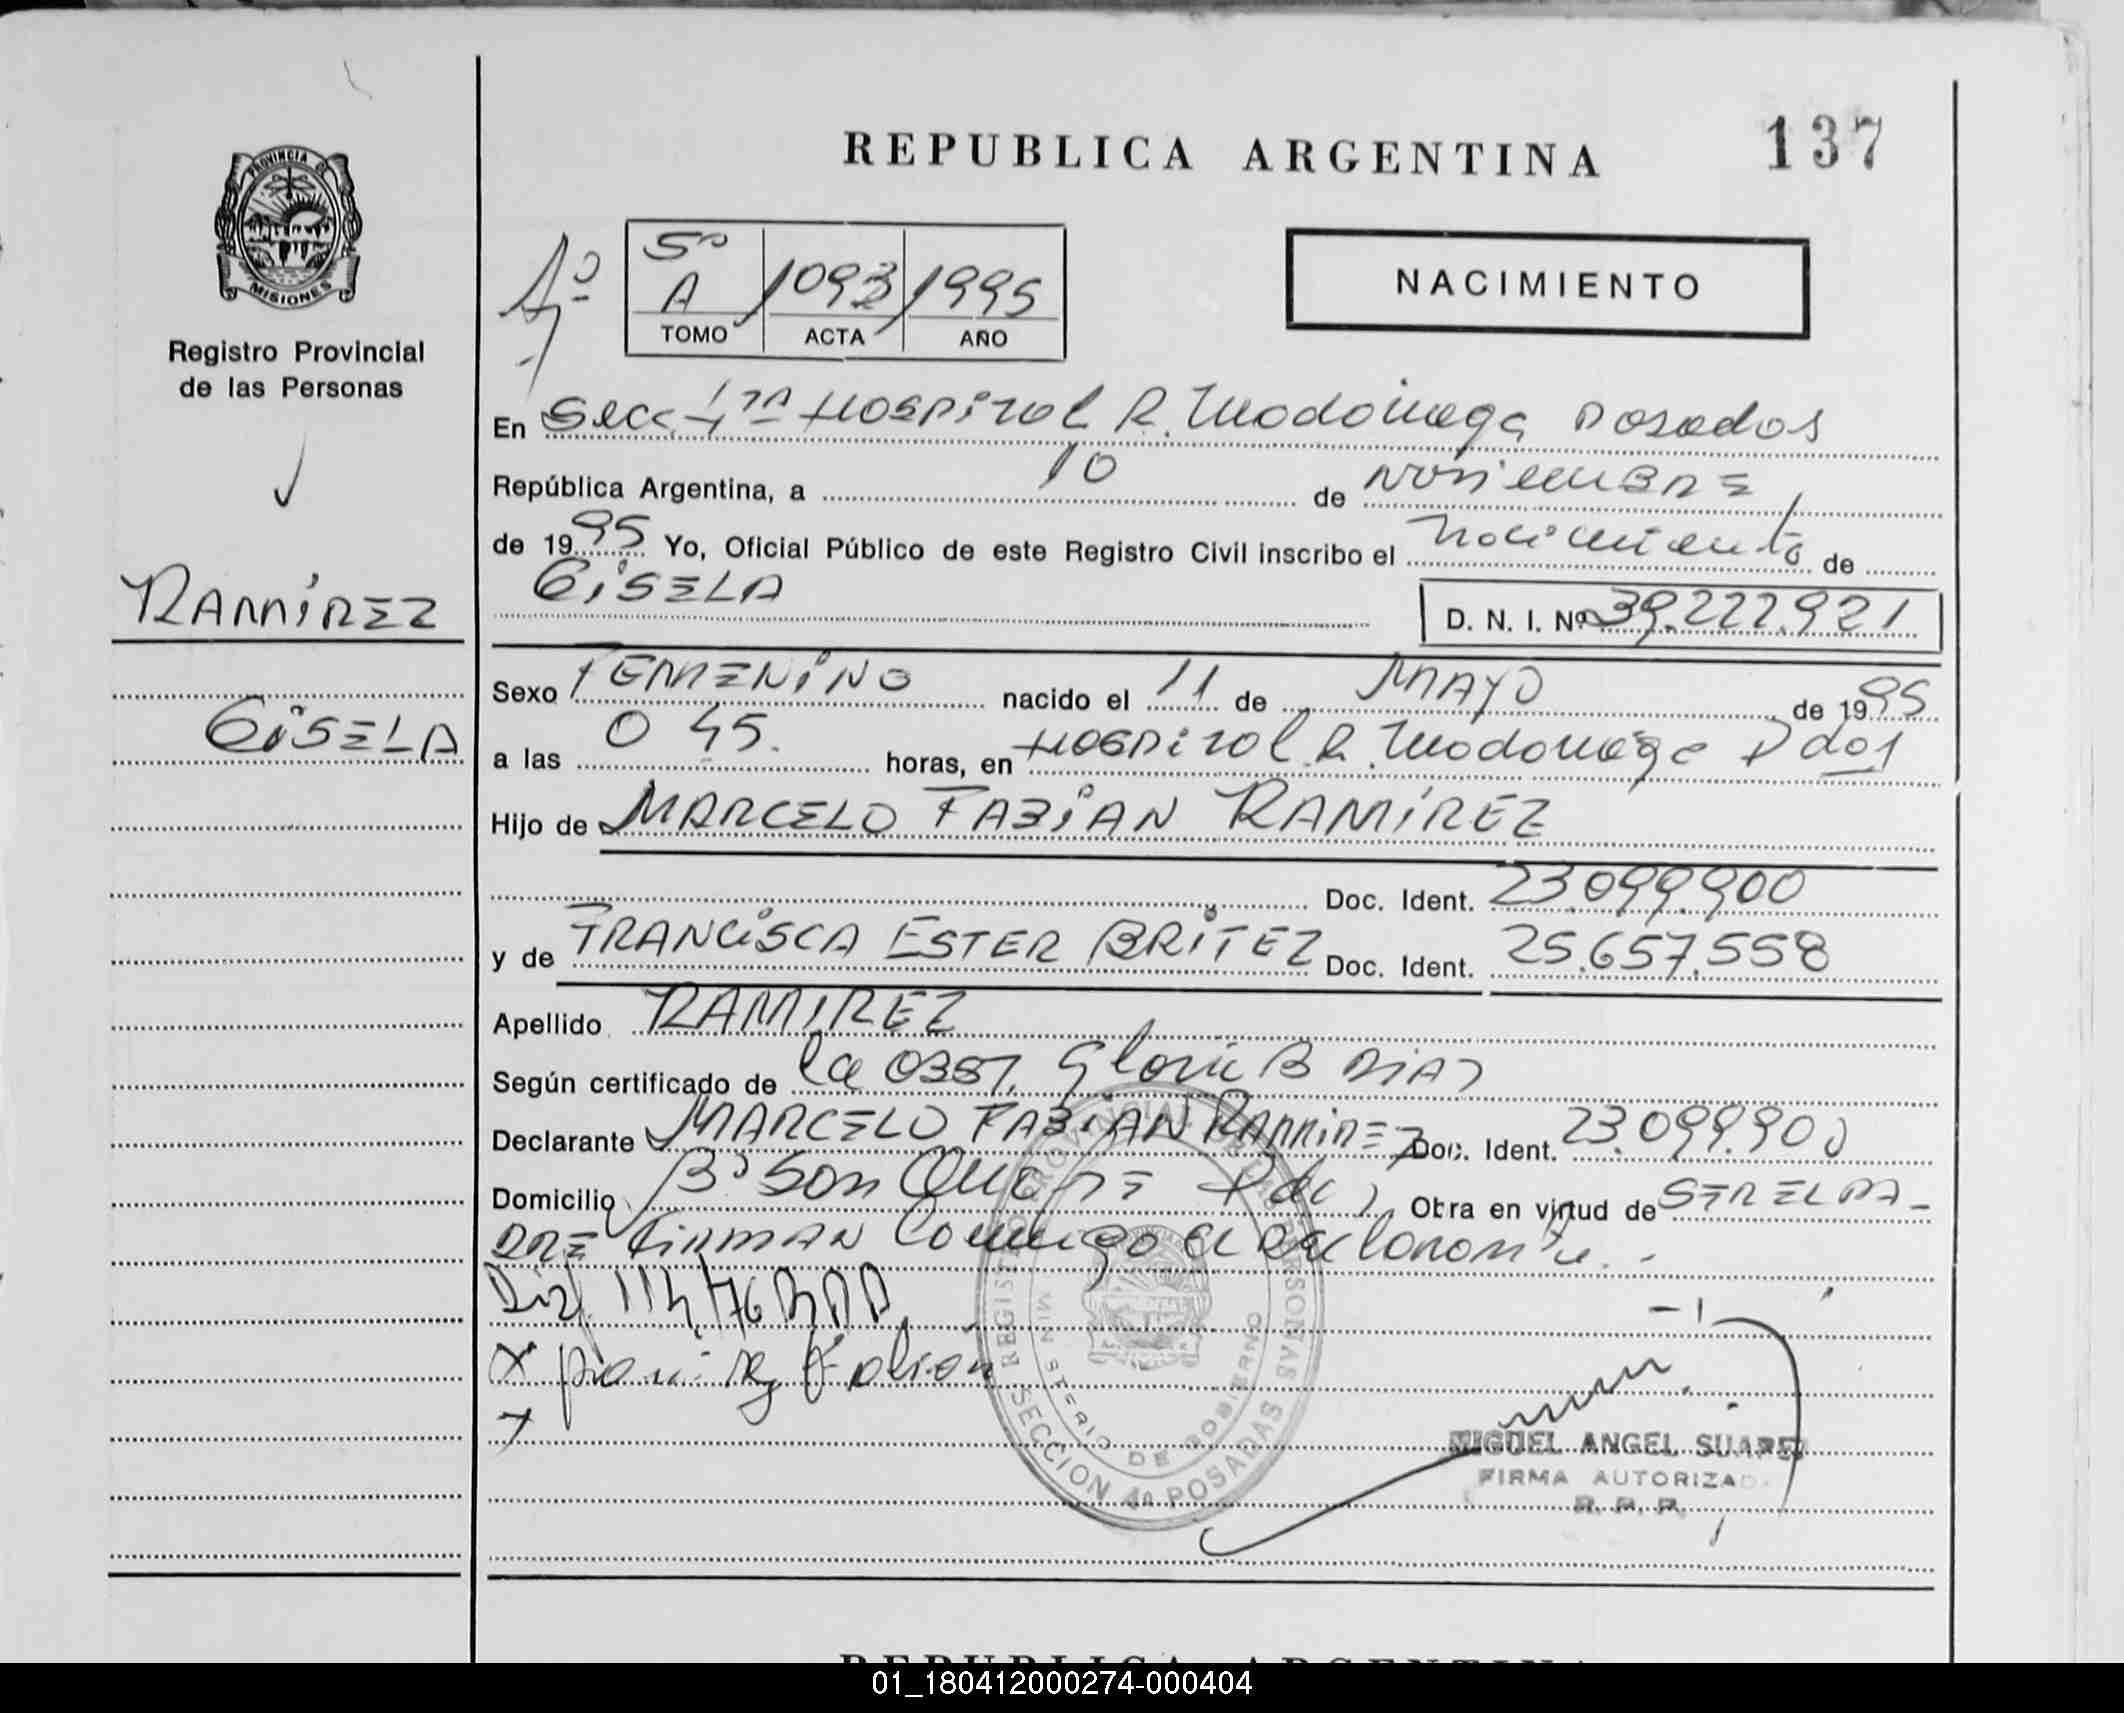 REPUBLICA ARGENTINA
137
PROVINCIA DE
MISIONES
Registro Provincial
de las Personas
RAMIREZ
GISELA
4º
5º
A 1093 1995
TOMO ACTA AÑO
NACIMIENTO
En Secc. 4ta Hospital R. Madariaga Posadas
República Argentina, a 10 de noviembre
de 1995 Yo, Oficial Público de este Registro Civil inscribo el nacimiento de
GISELA
D. N. I. Nº 39.222.921
Sexo FEMENINO nacido el 11 de MAYO de 1995
a las 0 45. horas, en Hospital R. Madariaga Pdas
Hijo de MARCELO FABIAN RAMIREZ
Doc. Ident. 23.099.900
y de FRANCISCA ESTER BRITEZ Doc. Ident. 25.657.558
Apellido RAMIREZ
Según certificado de la OBST. Gloria B DIAZ
Declarante MARCELO FABIAN RAMIREZ Doc. Ident. 23.099.900
Domicilio Bº San Pds Obra en virtud de SER EL PA-
DRE FIRMAN Conmigo el Declarante.-
Fabian
REGISTRO PROVINCIAL DE LAS PERSONAS
MINISTERIO DE GOBIERNO
SECCION 4ª POSADAS
MIGUEL ANGEL SUAREZ
FIRMA AUTORIZADA
R. P. P.
REPUBLICA ARGENTINA
01_180412000274-000404